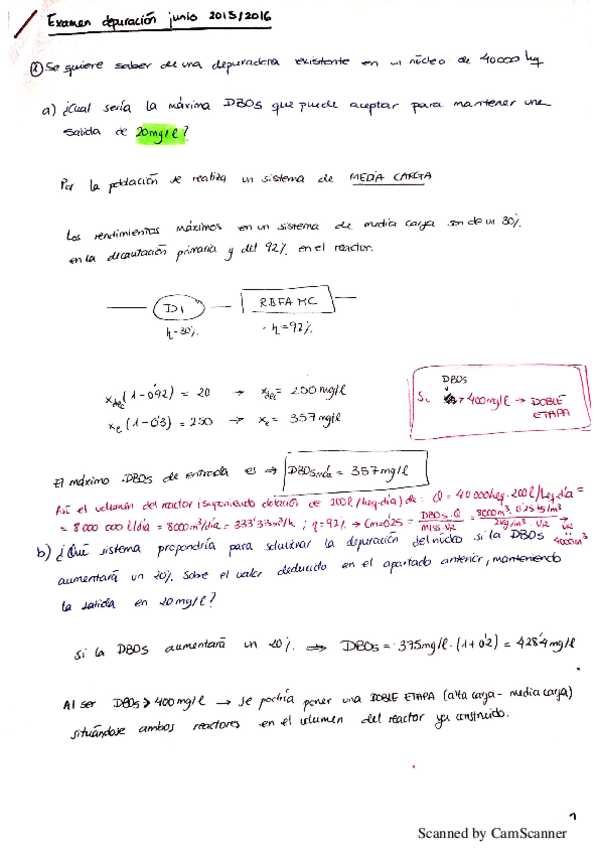 Examen depuración junio 2015/2016
② Se quiere saber de una depuradora existente en un núcleo de 40000 heq
a) ¿Cual sería la máxima DBO5 que puede aceptar para mantener una
salida de 20mg/l?
Por la población se realiza un sistema de MEDIA CARGA
Los rendimientos máximos en un sistema de media carga son de un 30%
en la decantación primaria y del 92% en el reactor.
D1
RBFA MC
η=30%
η=92%
x_dec (1-0'92) = 20 → x_dec = 250 mg/l
x_e (1-0'3) = 250 → x_e = 357 mg/l
DBO5
Si > 400mg/l → DOBLE
ETAPA
El máximo DBO5 de entrada es ⇒ DBO5 máx = 357 mg/l
Así el volumen del reactor (suponiendo dotación de 200 l/heq·día) de: Q = 40000heq·200 l/heq·día =
= 8 000 000 l/día = 8000m³/día = 333'33m³/h ; η=92% → Cm=0'25 = DBO5·Q / MLSS·VR = 8000m³·0'25 kg/m³ / 2kg/m³·VR → VR = 4000m³
b) ¿Qué sistema propondría para solucionar la depuración del núcleo si la DBO5
aumentará un 20% sobre el valor deducido en el apartado anterior, manteniendo
la salida en 20mg/l?
Si la DBO5 aumentará un 20% ⇒ DBO5 = 375mg/l·(1+0'2) = 428'4mg/l
Al ser DBO5 > 400mg/l → Se podría poner una DOBLE ETAPA (alta carga - media carga)
situándose ambos reactores en el volumen del reactor ya construido.
1
Scanned by CamScanner